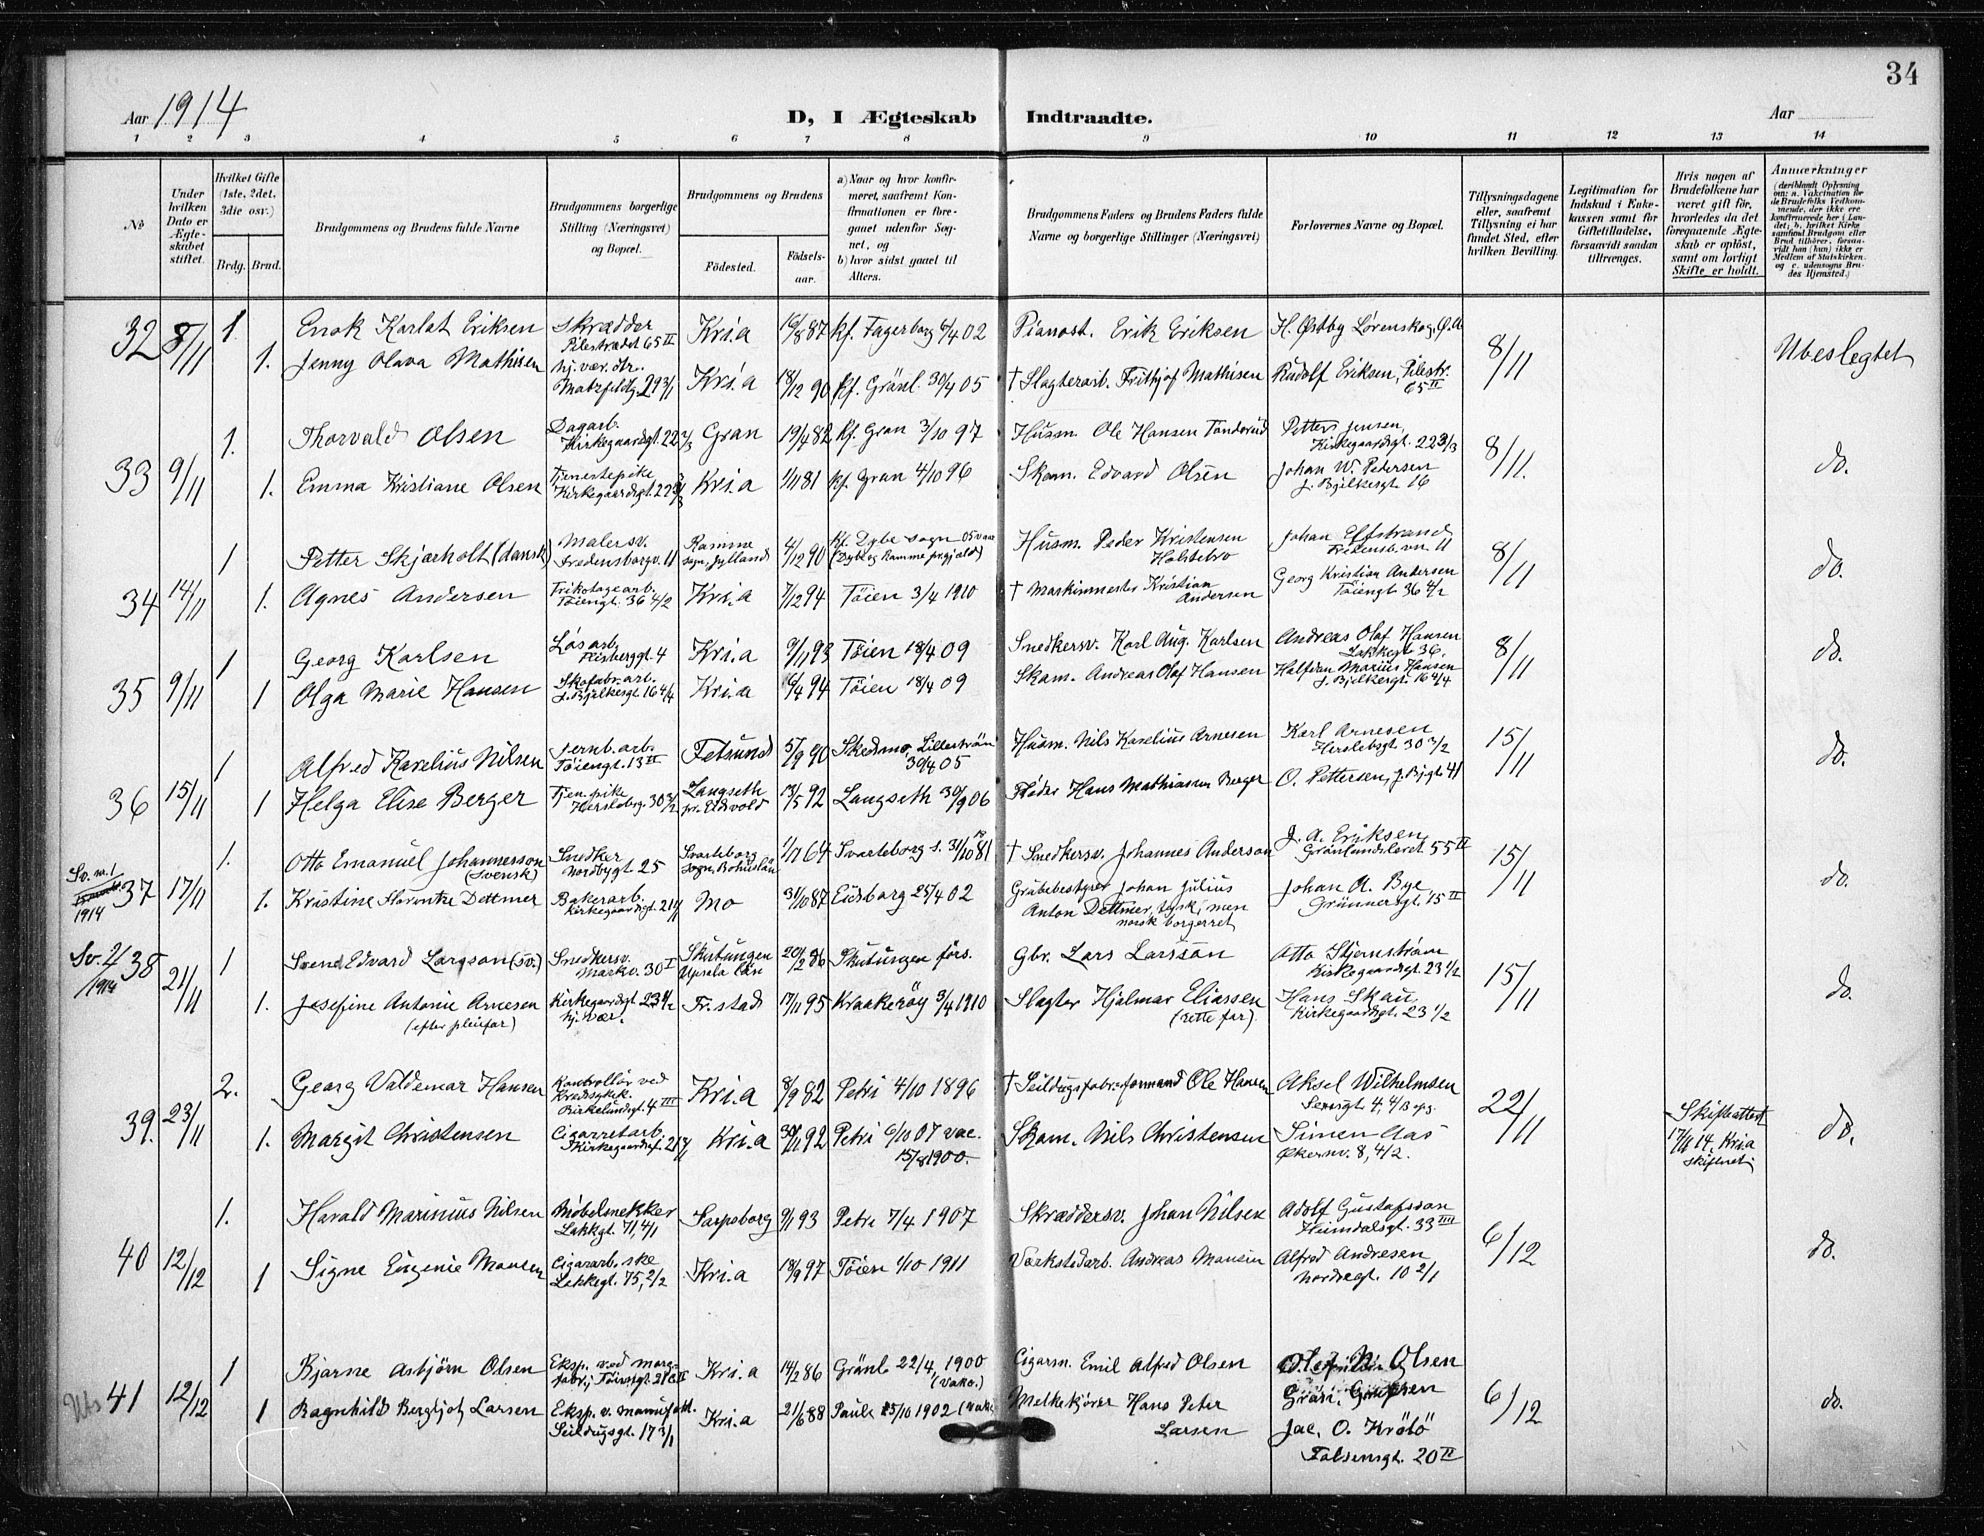 34
Aar 1914
D, I Ægteskab Indtraadte.
Aar
1 2 3 4 5 6 7 8 9 10 11 12 13 14
No
Under hvilken Dato er Ægteskabet stiftet.
Hvilket Gifte (1ste, 2det, 3die osv.)
Brdg. Brud.
Brudgommens og Brudens fulde Navne
Brudgommens borgerlige Stilling (Næringsvei) og Bopæl.
Brudgommens og Brudens
Fødested.
Fødselsaar.
a) Naar og hvor konfirmeret, saafremt Konfirmationen er foregaaet udenfor Sognet, og
b) hvor sidst gaaet til Alters.
Brudgommens Faders og Brudens Faders fulde Navne og borgerlige Stillinger (Næringsvei)
Forlovernes Navne og Bopæl.
Tillysningsdagene eller, saafremt Tillysning ei har fundet Sted, efter hvilken Bevilling.
Legitimation for Indskud i Enkekassen samt for Giftetilladelse, forsaavidt saadan tiltrænges.
Hvis nogen af Brudefolkene har været gift før, hvorledes da det foregaaende Ægteskab er opløst, samt om lovligt Skifte er holdt.
Anmærkninger
32 8/11 1 Enok Karlot Eriksen Skrædder Pilestrædet 65 II Kr.i.a 16/8 87 Kf. Fagerborg 6/4 02 Pianost. Erik Eriksen H. Østby Lørenskog, Ø.A 8/11 Ubeslegtet
1. Jenny Olava Mathisen hj. vær. dtr. Kr.i.a 18/12 90 Kf. Grønl. 30/4 05 † Slagterarb. Frithjof Mathisen Rudolf Eriksen, Pilestr. 65 II
33 9/11 1. Thorvald Olsen Dagarb. Kirkegaardsgt. 22 2/3 Gran 19/4 82 Kf. Gran 3/10 97 Husm. Ole Hansen Petter Jensen, Kirkegaardsgt. 22 3/3 8/11. do.
1. Emma Kristiane Olsen Tjenestepike Kirkegaardsgt. 22 Kr.i.a 1/11 81 Kf. Gran 4/10 96 Skom. Edvard Olsen Johan W. Pedersen J. Bjelkesgt. 16
34 14/11 1 Petter Skjærholt (dansk) Malersv. Fredensborgv. 11 Ramme sogn, Jylland 4/12 90 Kf. Dybe sogn 05 (Dybe og Ramme prgjæld) Husm. Peder Kristensen Holstebro Johan Effstrand 11 8/11 do.
1. Agnes Andersen Trikotagearb. Tøiengt. 36 4/2 Kr.i.a 7/12 94 Tøien 3/4 1910 † Maskinmester Kristian Andersen Georg Kristian Andersen Tøiengt. 36 4/2
35 9/11 1 Georg Karlsen Løsarb. 4 Kr.i.a 9/11 93 Tøien 18/4 09 Snedkersv. Karl Aug. Karlsen Andreas Olaf Hansen Lakkegt. 36. 8/11 do.
1 Olga Marie Hansen Skofabr. arb. J. Bjelkesgt. 16 4/4 Kr.i.a 16/4 94 Tøien 18/4 09 Skom. Andreas Olaf Hansen Halfdan Marius Hansen J. Bjelkesgt. 16 4/4
36 15/11 1 Alfred Karelius Nilsen Jernb. arb. Tøiengt. 13 II Fetsund 5/9 90 Skedsmo, Lillestrøm 30/4 05 Husm. Nils Karelius Arnesen Karl Arnesen Herslebsgt. 30 3/2 15/11 do.
1 Helga Elise Berger Tjen.pike Herslebsg. 30 3/2 Langseth pr. Eidsvold 13/5 92 Langseth 30/9 06 Fløder Hans Mathiassen Berger O. Pettersen, J. Bjgt. 41
Sv. n. 1 1914 37 17/11 1. Otto Emanuel Johannesson (Svensk) Snedker Nordbygt. 25 Svarteborg sogn, Bohuslän 1/11 64 Svarteborg s. 31/10 81 † Snedkersv. Johannes Anderson J. A. Eriksen Grønlandsleret 55 II 15/11 do.
1. Kristine Florentze Dettmer Bakerarb. Kirkegaardsgt. 21 Mo 31/10 87 Eidsborg 25/4 02 Grubebestyrer Johan Julius Anton Dettmer, tysk, men norsk borgerret Johan A. Bye, Grünnergt. 15 II
Sv. 2/1914 38 21/11 1 Svend Edvard Larsson (sv.) Snedkersv. Markv. 30 I Skutungen Upsala län 20/2 86 Skutungen førs. Gbr. Lars Larsson Otto Stjernstrøm Kirkegaardsgt. 23 1/2 15/11 do.
1. Josefine Antonie Arnesen (efter pleiefar) Kirkegaardsgt. 23 1/2 hj. vær. Fr.stad 17/11 95 Kraakerøy 3/4 1910 Slagter Hjalmar Eliassen (rette far) Hans Skau Kirkegaardsgt. 23 1/2
39. 23/11 2. Georg Valdemar Hansen Kontrollør ved Kredssykek. Birkelundsgt. 4 III Kr.i.a 8/9 82 Petri 4/10 1896 † Seildugsfabr. formand Ole Hansen Aksel Wilhelmsen 22/11 Skifteattest 17/11 14, Kr.ia skifteret do.
1. Margit Christensen Cigarretarb. Kirkegaardsgt. 21 Kr.i.a 30/11 92 Petri 6/10 07 vac. 15/8 1900. Skom. Nils Christensen Simen Aas Økernv. 8, 4/2.
40 12/12 1. Harald Marinius Nilsen Møbelsnekker Lakkgt. 71, 4/1 Sarpsborg 9/1 93 Petri 7/4 1907 Skræddersv. Johan Nilsen Adolf Gustafsson Heimdalsgt. 33 III 6/12 do.
1 Signe Eugenie Monsen Cigararb.ske Lakkegt. 75, 2/2 Kr.i.a 18/9 97 Tøien 1/10 1911 Værkstedarb. Andreas Monsen Alfred Andresen Nordregt. 10 2/1
41 12/12 1 Bjarne Asbjørn Olsen Eksp. ved marg. fabr., Tøiengt. Kr.i.a 14/2 86 Grønl 22/4, 1900 (vakc.) Cigarm. Emil Alfred Olsen Olsen 6/12 do.
1 Ragnhild Bergljot Larsen Eksp. v. manufakt. Seildugsgt. 17 3/1 Kr.i.a 21/6 88 Paulc 25/10 1902 Melkekjører Hans Peter Larsen Jac. O. Krøtø Falsensgt. 20 II